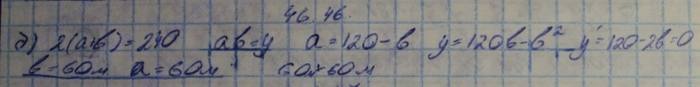 46. 46.
д) 2(a+в)=240 aв=y a=120-в y=120в-в² y'=120-2в=0
в=60м a=60м 60×60м